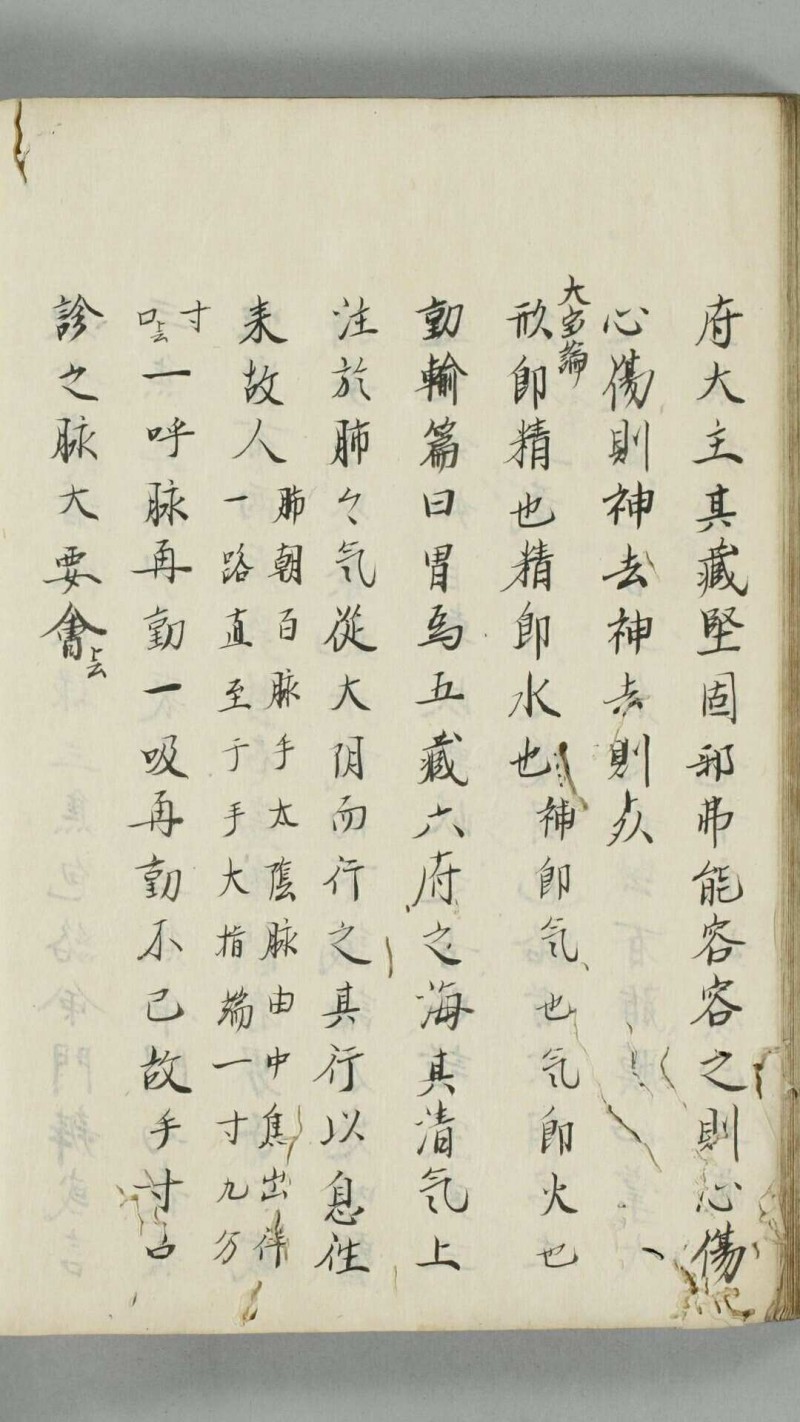 府大主其藏堅固邪弗能容容之則心傷
心傷則神去神去則死
大宝論
形即精也精即水也神即気也気即火也
動輸篇曰胃為五藏六府之海其清気上
注於肺々気從大阴而行之其行以息往
来故人
肺朝百脉手太陰脉由中焦出
一路直至于手大指端一寸九分
寸口云
一呼脉再動一吸再動不已故手寸口
診之脉大要會云